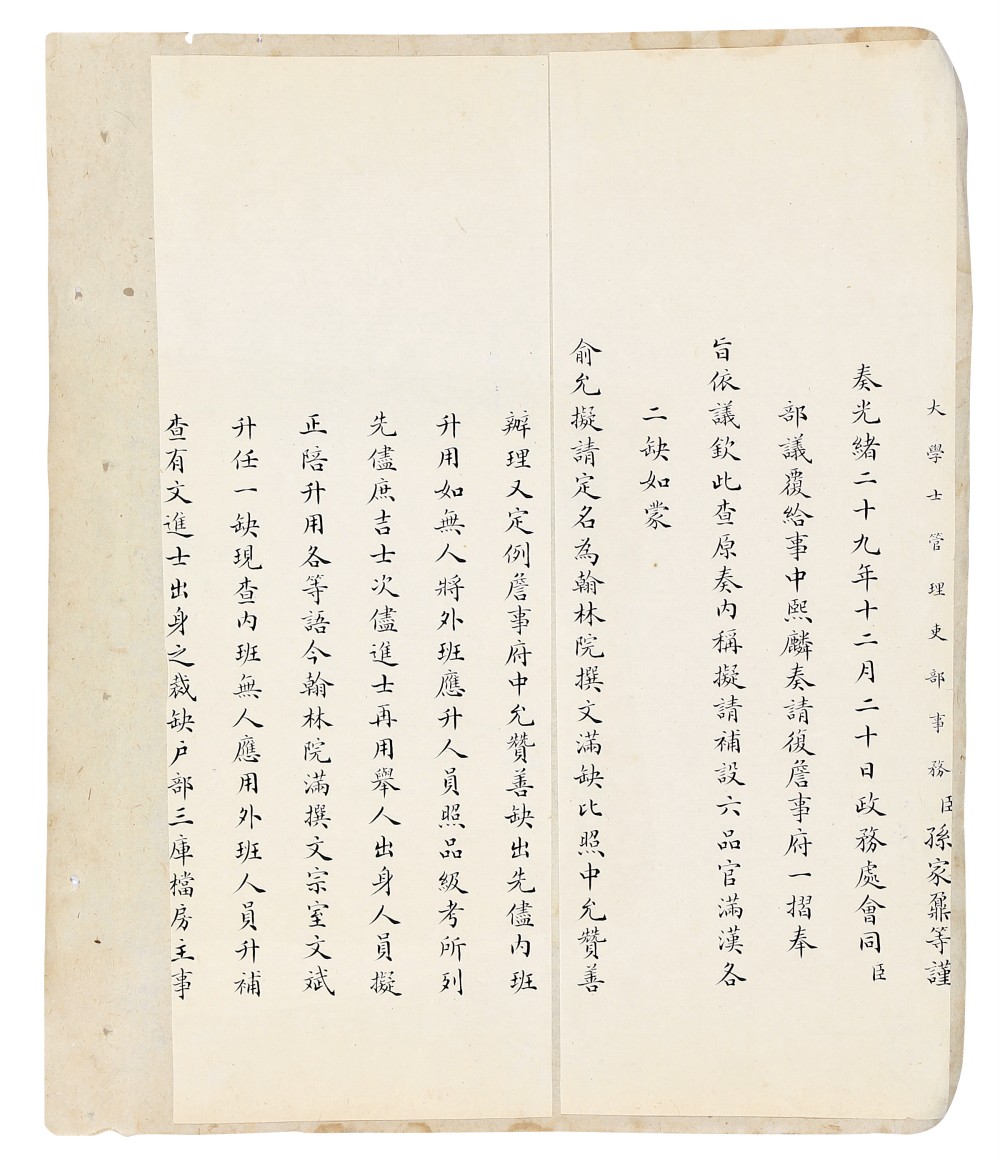 大學士管理吏部事務臣孫家鼐等謹
奏光緒二十九年十二月二十日政務處會同臣
部議覆給事中熙麟奏請復詹事府一摺奉
旨依議欽此查原奏內稱擬請補設六品官滿漢各
二缺如蒙
俞允擬請定名為翰林院撰文滿缺比照中允贊善
辦理又定例詹事府中允贊善缺出先儘內班
升用如無人將外班應升人員照品級考所列
先儘庶吉士次儘進士再用舉人出身人員擬
正陪升用各等語今翰林院滿撰文宗室文斌
升任一缺現查內班無人應用外班人員升補
查有文進士出身之裁缺戶部三庫檔房主事